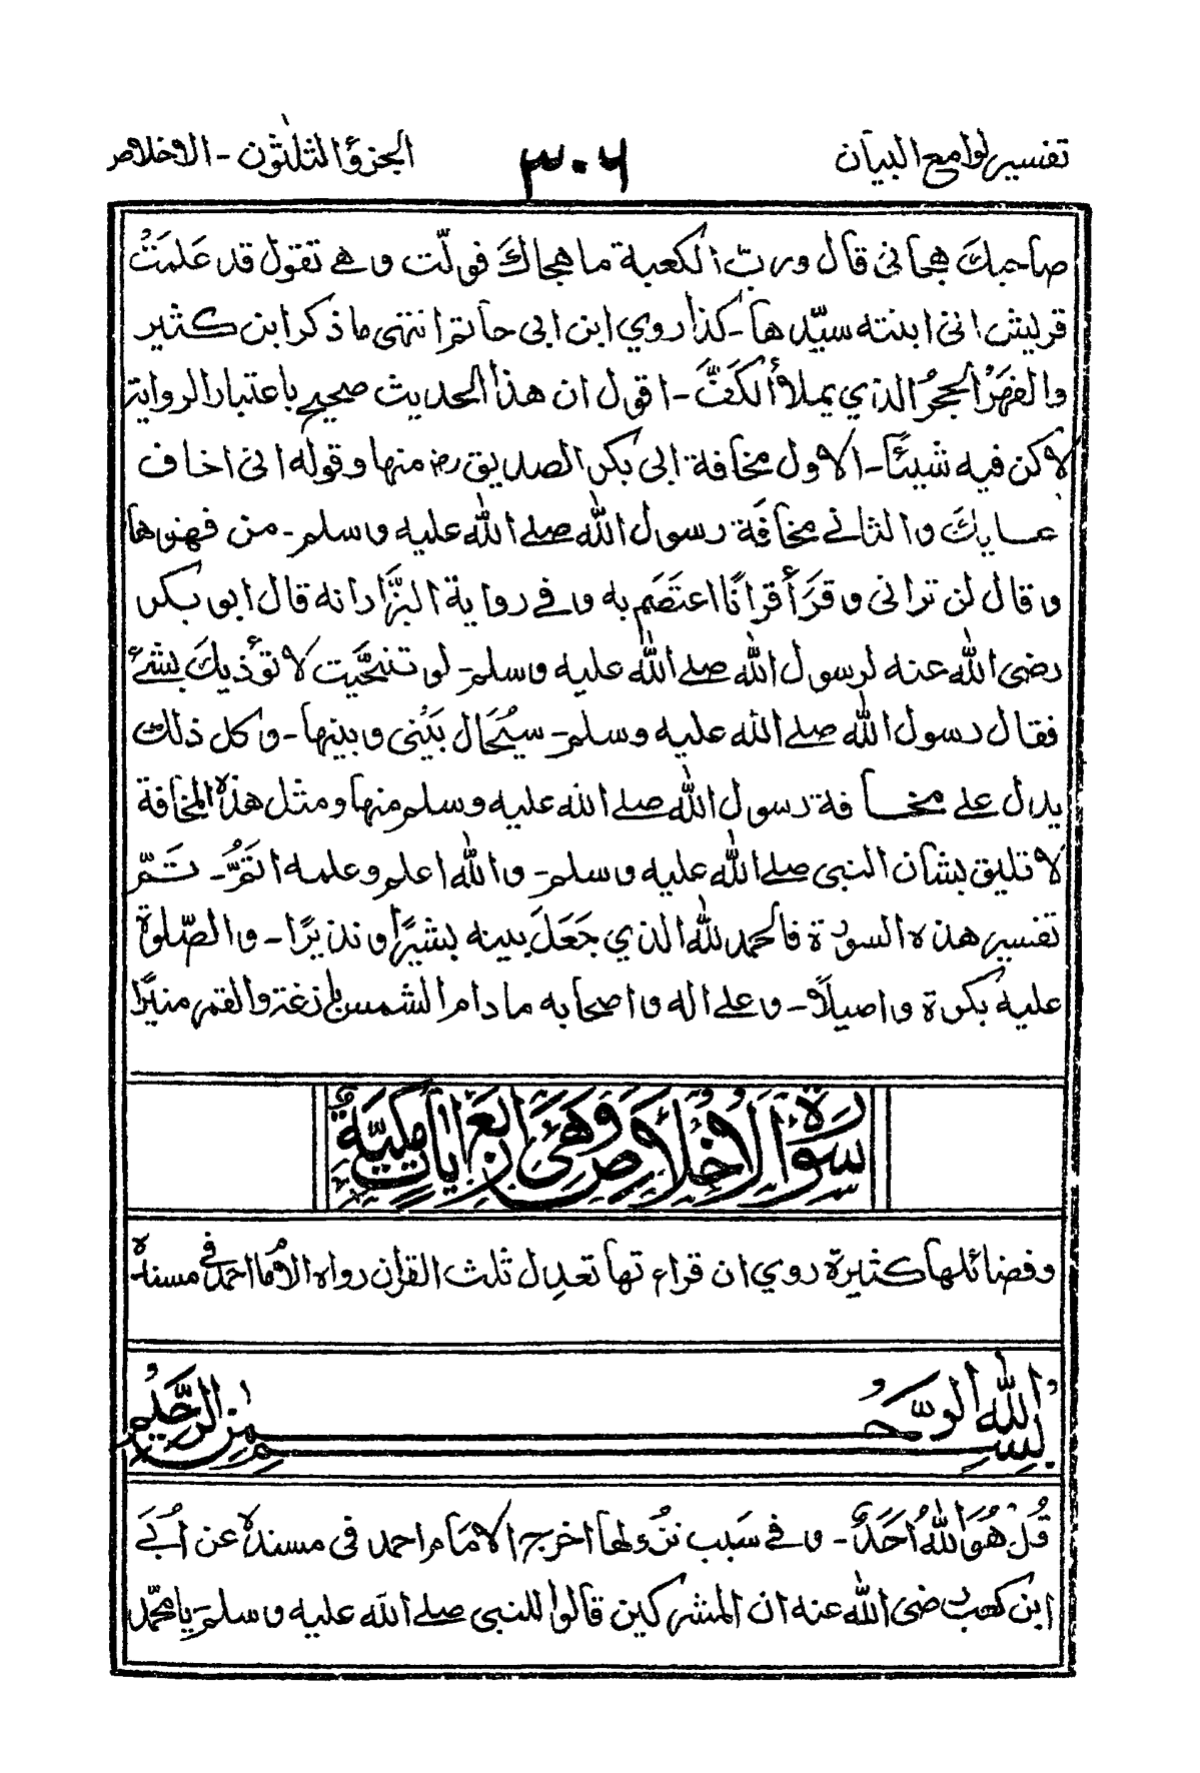 تفسير لوامع البيان ٣٠٦ الجزؤ الثلثون - الاخلاص
صاحبك هجانى قال ورب الكعبة ما هجاك فولّت وهے تقول قد عَلمَتْ
قريش انى ابنته سيّدها - كذا روي ابن ابى حاتم انتهى ما ذكر ابن كثير
والفهَرُ الحجرُ الذي يملأ الكَفَّ - اقول ان هذا الحديث صحيح باعتبار الرواية
لاكن فيه شيئًا - الاول مخافة ابى بكر الصديق رض منها وقوله انى اخاف
عــايك والثانے مخافَة رسول الله صلے الله عليه وسلم - من فهرها
وقال لن ترانى وقَرَأَ قرانًا اعتَصَم به وفے رواية البزَّار انه قال ابو بكر
رضى الله عنه لرسول الله صلے الله عليه وسلم - لو تنحَّيت لا تؤذيكَ بشئ
فقال رسول الله صلے الله عليه وسلم - سيُحَال بَيْنى وبينها - وكل ذلك
يدل علے مخــافة رسول الله صلے الله عليه وسلم منها ومثل هذه المخافة
لا تليق بشان النبى صلے الله عليه وسلم - والله اعلم وعلمه اتَمُّ - تَمّ
تفسير هذه السورة فالحمد لله الذي جَعَلَ نبيه بشيرًا ونذيرًا - والصّلوة
عليه بكرة واصيلًا - وعلے اله واصحابه ما دام الشمس بازغة والقمر منيرًا
سورة الاخلاص وهى اربع ايات مكيّة
وفضائلها كثيرة روي ان قراءتها تعدِل ثلث القران رواه الامام احمد فى مسنده
بسم الله الرحمن الرحيم
قُلْ هُوَ اللهُ اَحَدٌ - وفے سَبب نزولها اخرج الامام احمد فى مسنده عن اُبَے
ابن كعب رضى الله عنه ان المشركين قالوا للنبى صلے الله عليه وسلم يا محمّد